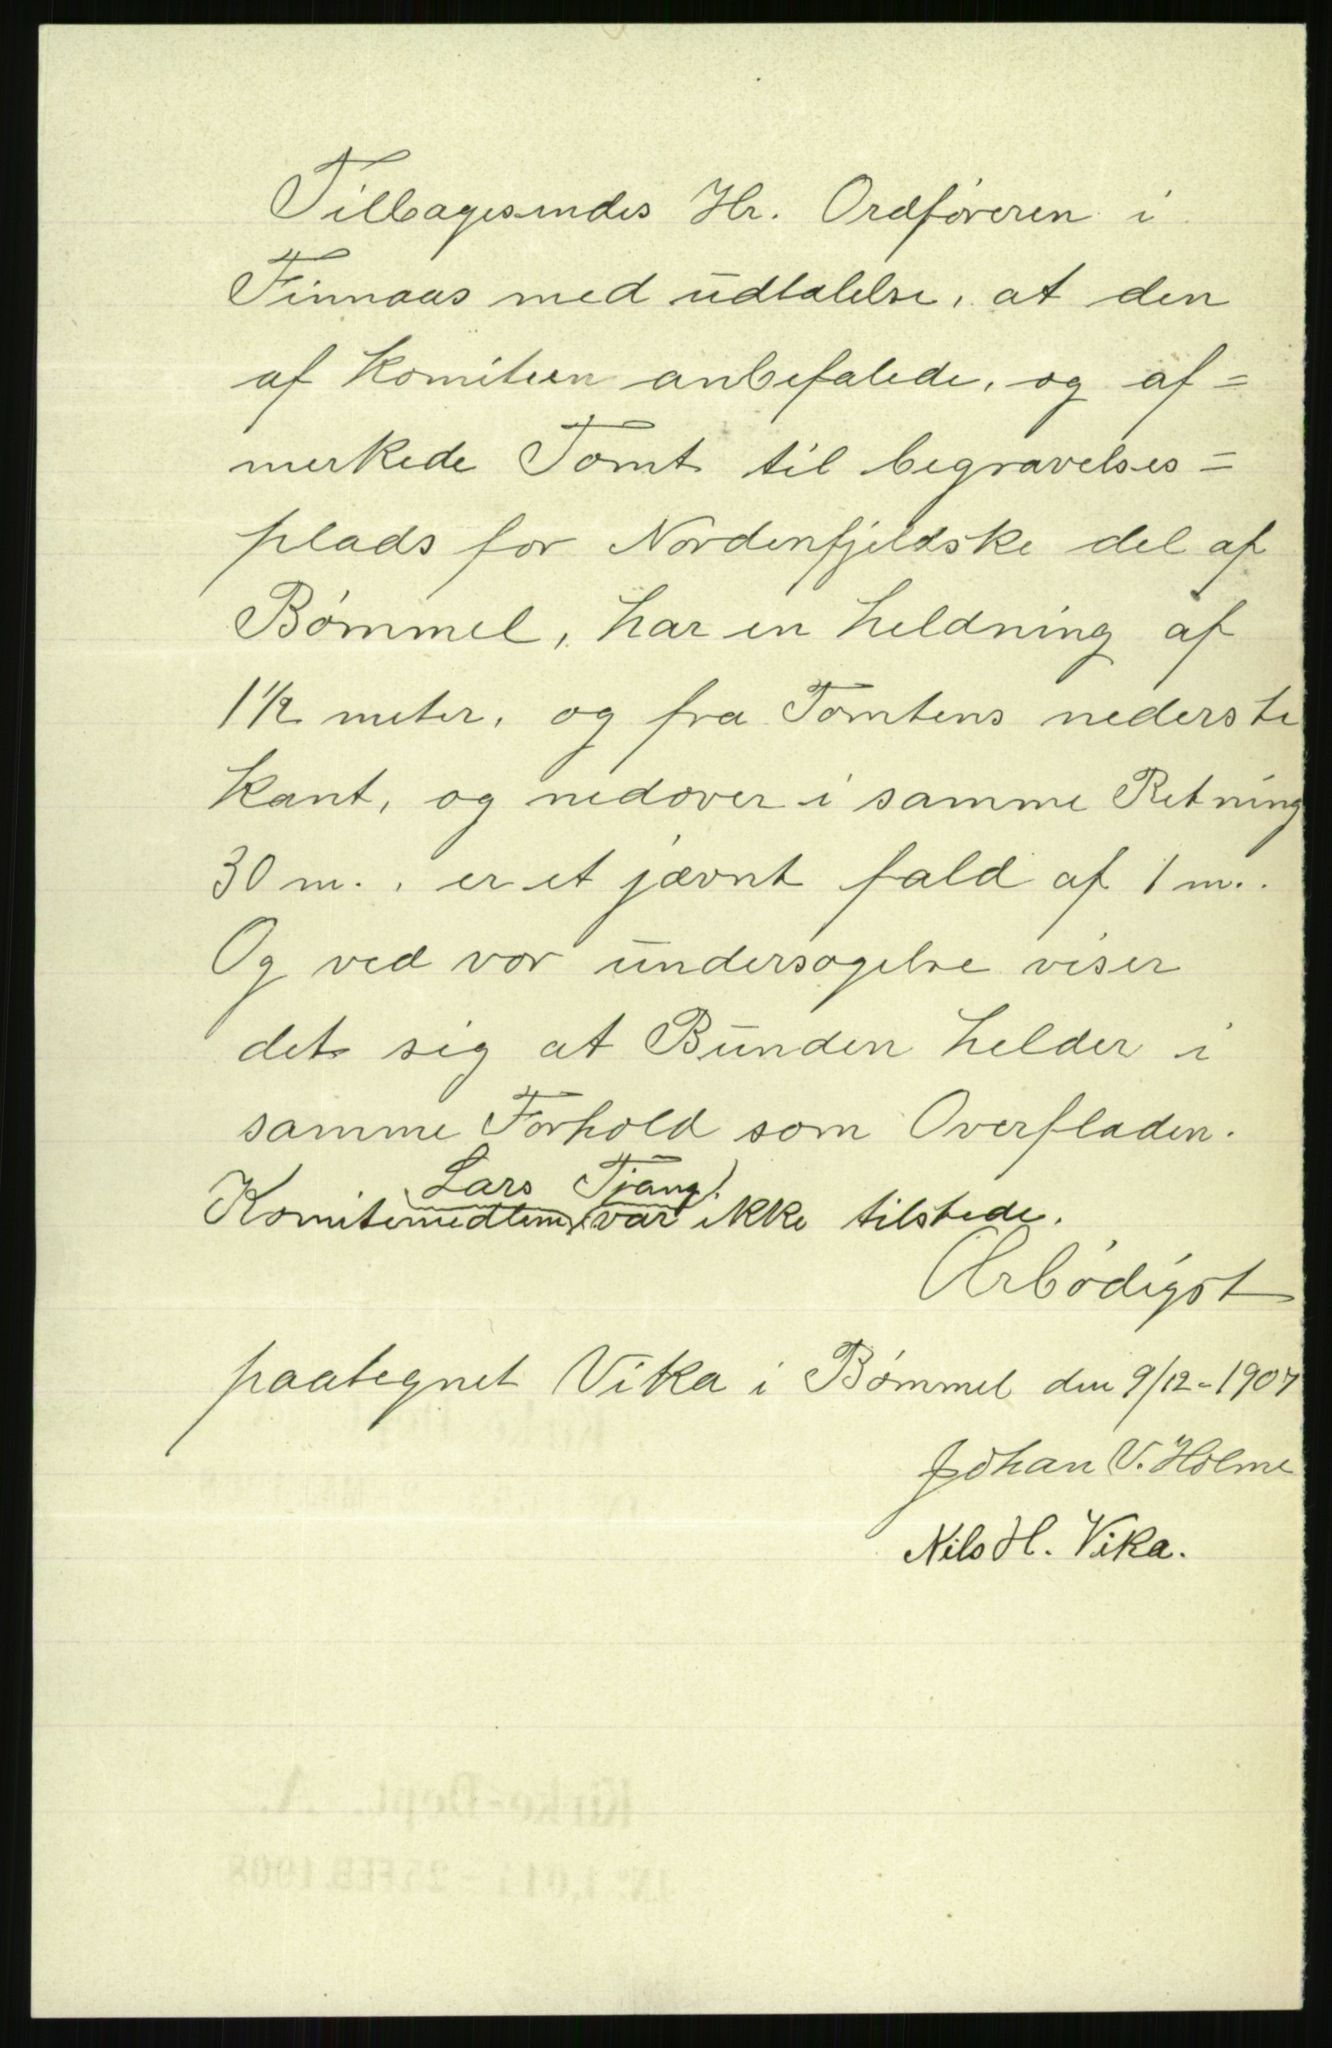 Tilbagesendes Hr. Ordføreren i
Finnaas med udtalelse, at den
af Komiteen anbefalede, og af=
merkede Tomt til begravelses=
plads for Nordenfjeldske del af
Bømmel, har en heldning af
1 1/2 meter, og fra Tomtens nederste
kant, og nedover i samme Retning
30 m., er et jævnt fald af 1 m..
Og ved vor undersøgelse viser
det sig at Bunden helder i
samme Forhold som Overfladen.
(Lars Tjong)
Komitemedlem var ikke tilstede.
Ærbødigst
paategnet Vika i Bømmel den 9/12-1907
Johan V. Holme
Nils H. Vika.
Kirke-Dept. A.
25 FEB. 1908